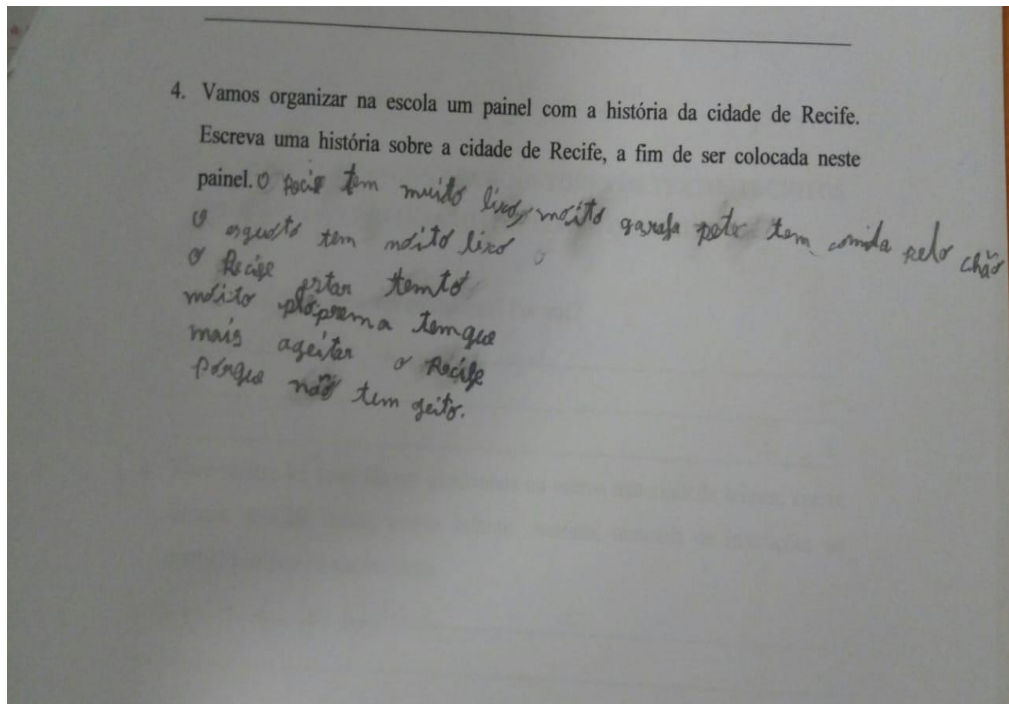 4. Vamos organizar na escola um painel com a história da cidade de Recife.
Escreva uma história sobre a cidade de Recife, a fim de ser colocada neste
painel. O Recife tem muito lixo, moito garafa pete tem comida pelo chão
O esgusto tem moito lixo o
o Recife estar temto
moito ploprema tem que
mais ageitar o Recife
porque não tem geito.